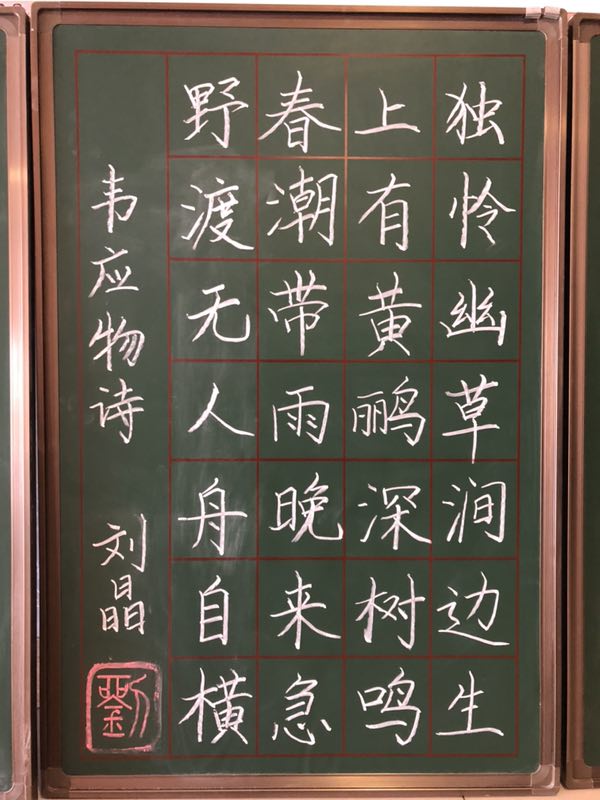 独怜幽草涧边生
上有黄鹂深树鸣
春潮带雨晚来急
野渡无人舟自横
韦应物诗 刘晶
劉